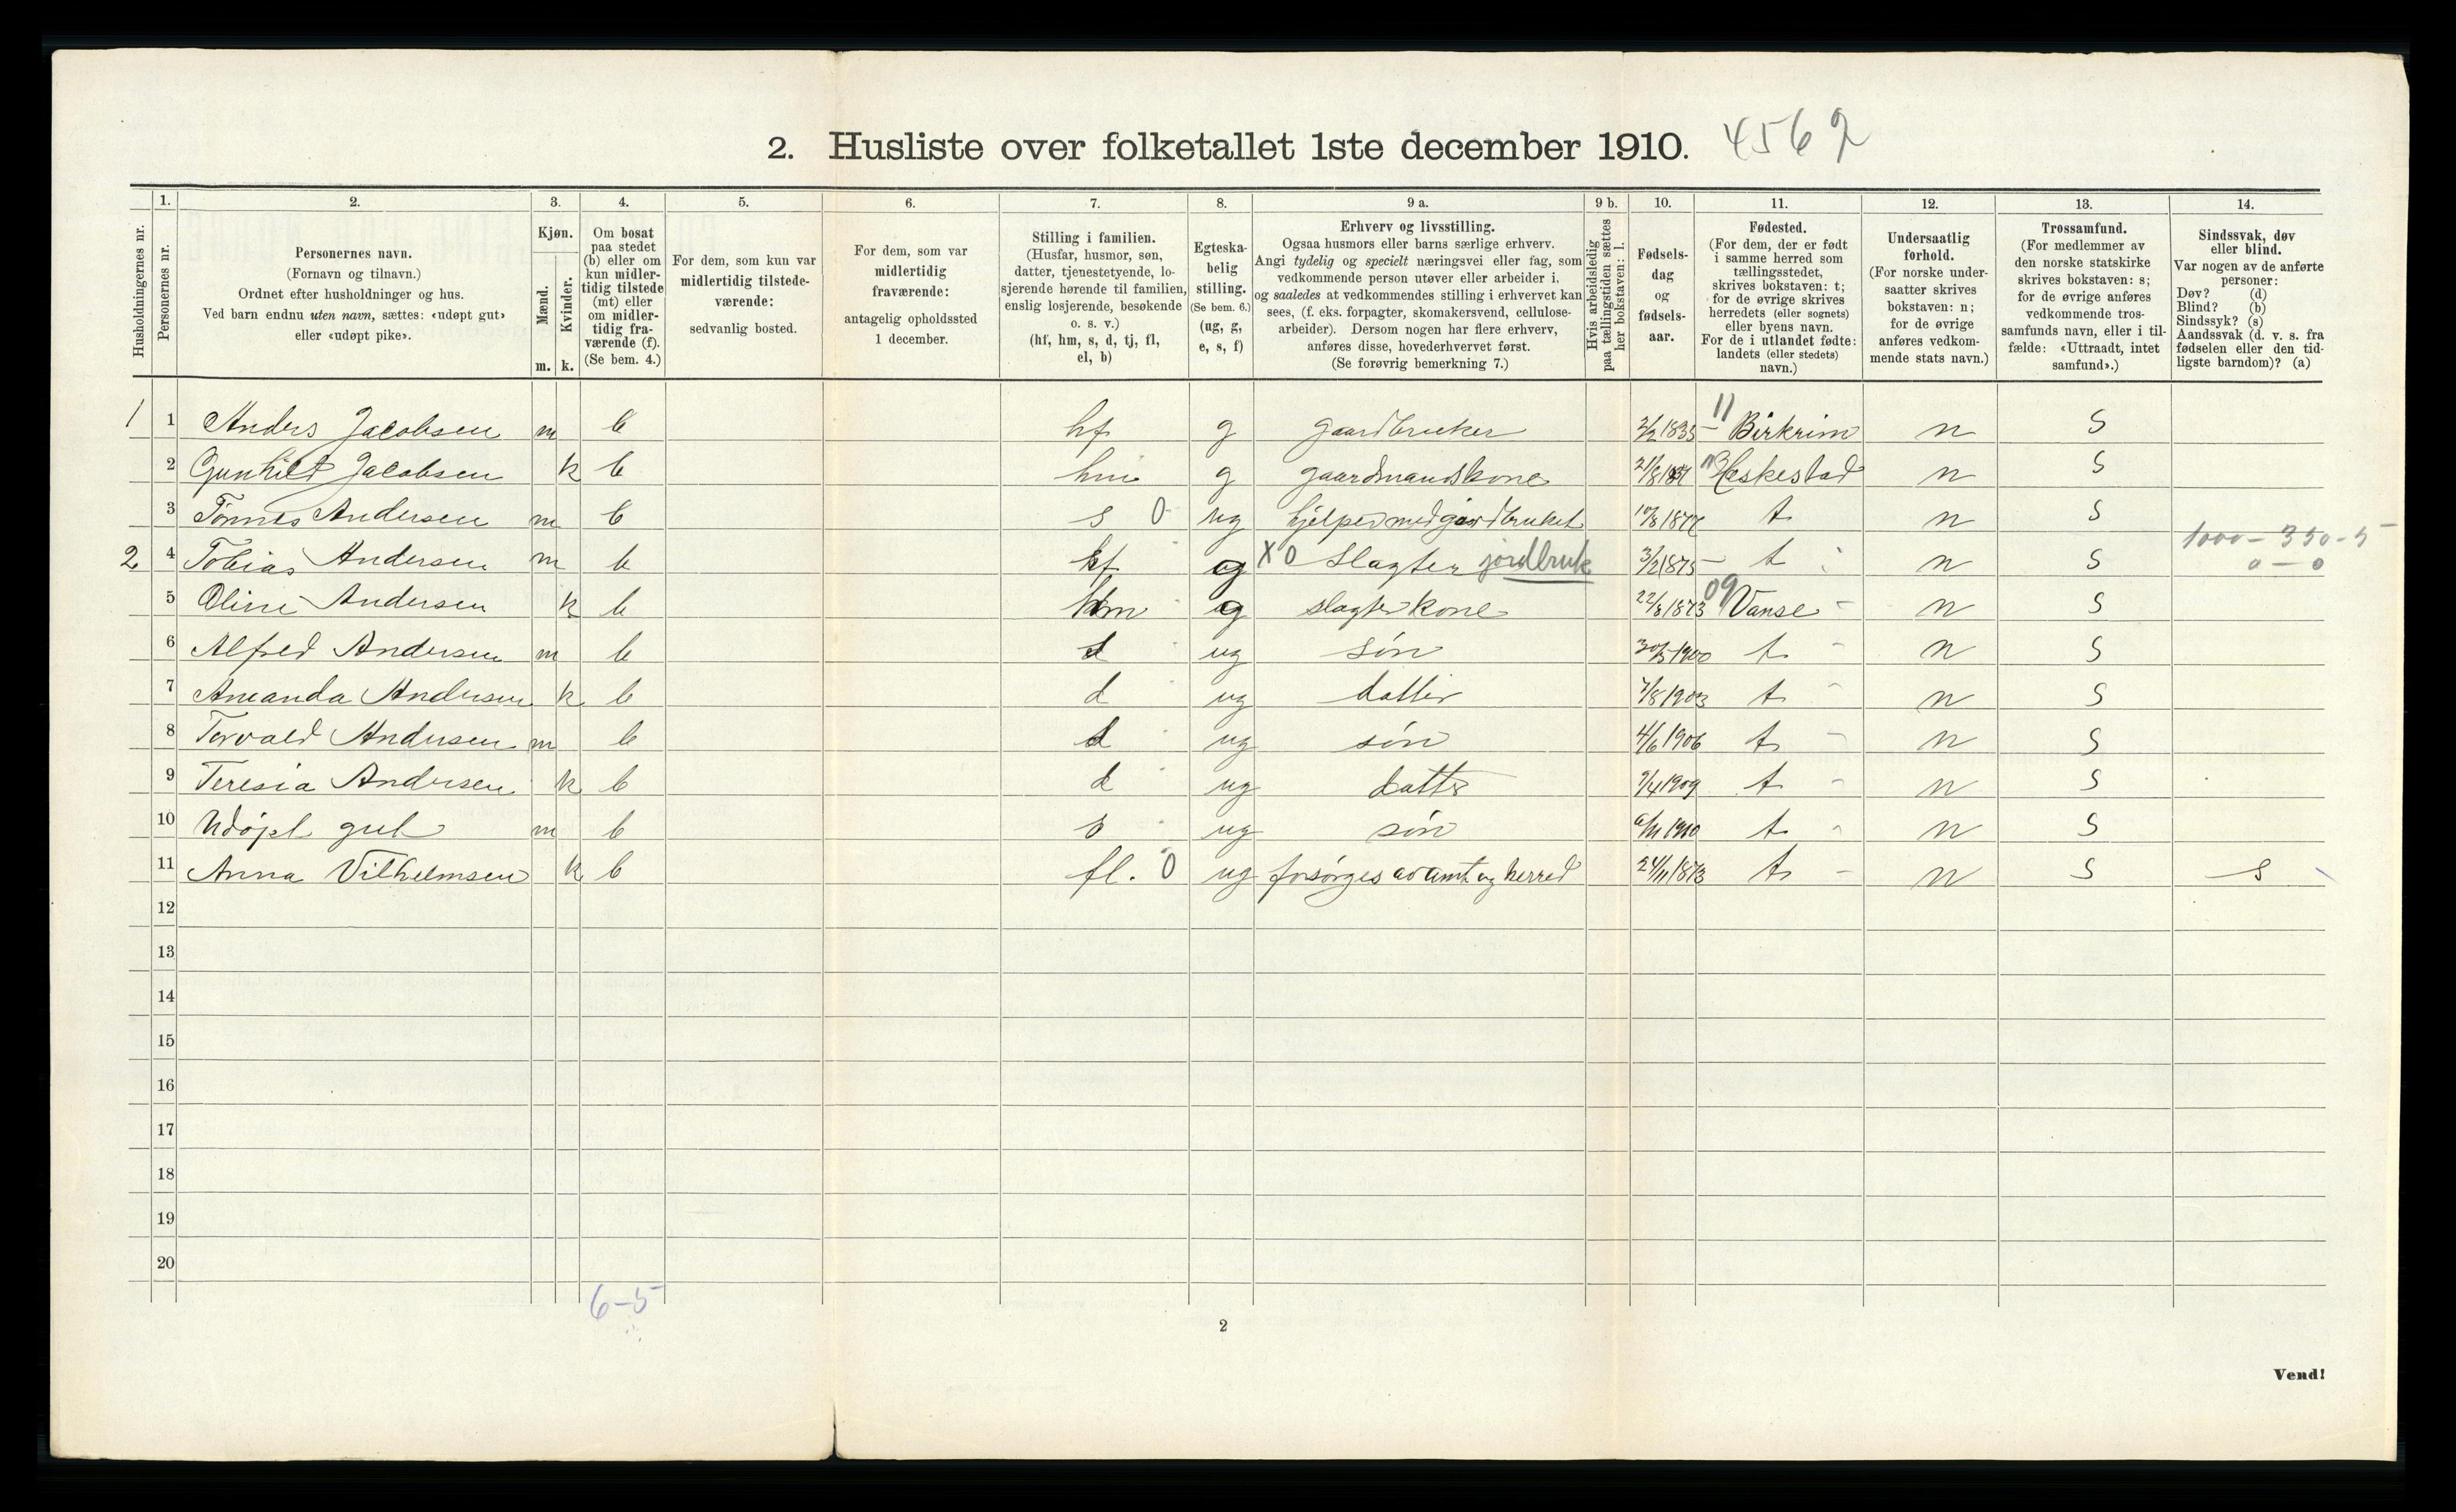 2. Husliste over folketallet 1ste december 1910. 4562
1. 2. 3. 4. 5. 6. 7. 8. 9 a. 9 b. 10. 11. 12. 13. 14.
Husholdningernes nr.
Personernes nr.
Personernes navn.
(Fornavn og tilnavn.)
Ordnet efter husholdninger og hus.
Ved barn endnu uten navn, sættes: «udøpt gut»
eller «udøpt pike».
Kjøn.
Mænd.
Kvinder.
m. k.
Om bosat
paa stedet
(b) eller om
kun midler-
tidig tilstede
(mt) eller
om midler-
tidig fra-
værende (f).
(Se bem. 4.)
For dem, som kun var
midlertidig tilstede-
værende:
sedvanlig bosted.
For dem, som var
midlertidig
fraværende:
antagelig opholdssted
1 december.
Stilling i familien.
(Husfar, husmor, søn,
datter, tjenestetyende, lo-
sjerende hørende til familien,
enslig losjerende, besøkende
o. s. v.)
(hf, hm, s, d, tj, fl,
el, b)
Egteska-
belig
stilling.
(Se bem. 6.)
(ug, g,
e, s, f)
Erhverv og livsstilling.
Ogsaa husmors eller barns særlige erhverv.
Angi tydelig og specielt næringsvei eller fag, som
vedkommende person utøver eller arbeider i,
og saaledes at vedkommendes stilling i erhvervet kan
sees, (f. eks. forpagter, skomakersvend, cellulose-
arbeider). Dersom nogen har flere erhverv,
anføres disse, hovederhvervet først.
(Se forøvrig bemerkning 7.)
Hvis arbeidsledig
paa tællingstiden sættes
her bokstaven: l.
Fødsels-
dag
og
fødsels-
aar.
Fødested.
(For dem, der er født
i samme herred som
tællingsstedet,
skrives bokstaven: t;
for de øvrige skrives
herredets (eller sognets)
eller byens navn.
For de i utlandet fødte:
landets (eller stedets)
navn.)
Undersaatlig
forhold.
(For norske under-
saatter skrives
bokstaven: n;
for de øvrige
anføres vedkom-
mende stats navn.)
Trossamfund.
(For medlemmer av
den norske statskirke
skrives bokstaven: s;
for de øvrige anføres
vedkommende tros-
samfunds navn, eller i til-
fælde: «Uttraadt, intet
samfund».)
Sindssvak, døv
eller blind.
Var nogen av de anførte
personer:
Døv? (d)
Blind? (b)
Sindssyk? (s)
Aandssvak (d. v. s. fra
fødselen eller den tid-
ligste barndom)? (a)
1 1 Anders Jacobsen m b hf g gaardbruker 2/2 1835 11 Birkrim n s
2 Gunhild Jacobsen k b hm g gaardmandskone 21/8 Heskestad n s
3 Tønnes Andersen m b s 0 ug hjelper med gardbruket t n s
2 4 Tobias Andersen m b hf g X0 Slagter jordbruk 3/2 1875 t n s 1000-350-5
0 - 0
5 Oline Andersen k b hm g slagterkone 22/8 1873 09 Vanse n s
6 Alfred Andersen m b ug søn 1900 t n s
7 Amanda Andersen k b d ug datter 7/8 1903 t n s
8 Torvald Andersen m b ug søn 4/6 1906 t n s
9 Teresia Andersen k b d ug datter 9/4 1909 t n s
10 Udøpt gut m b s ug søn 1910 t n s
11 Anna Vilhelmsen k b fl. 0 ug forsørges av amt og herred 24/11 1873 t n s s
12
13
14
15
16
17
18
19
20
6-5
2
Vend!